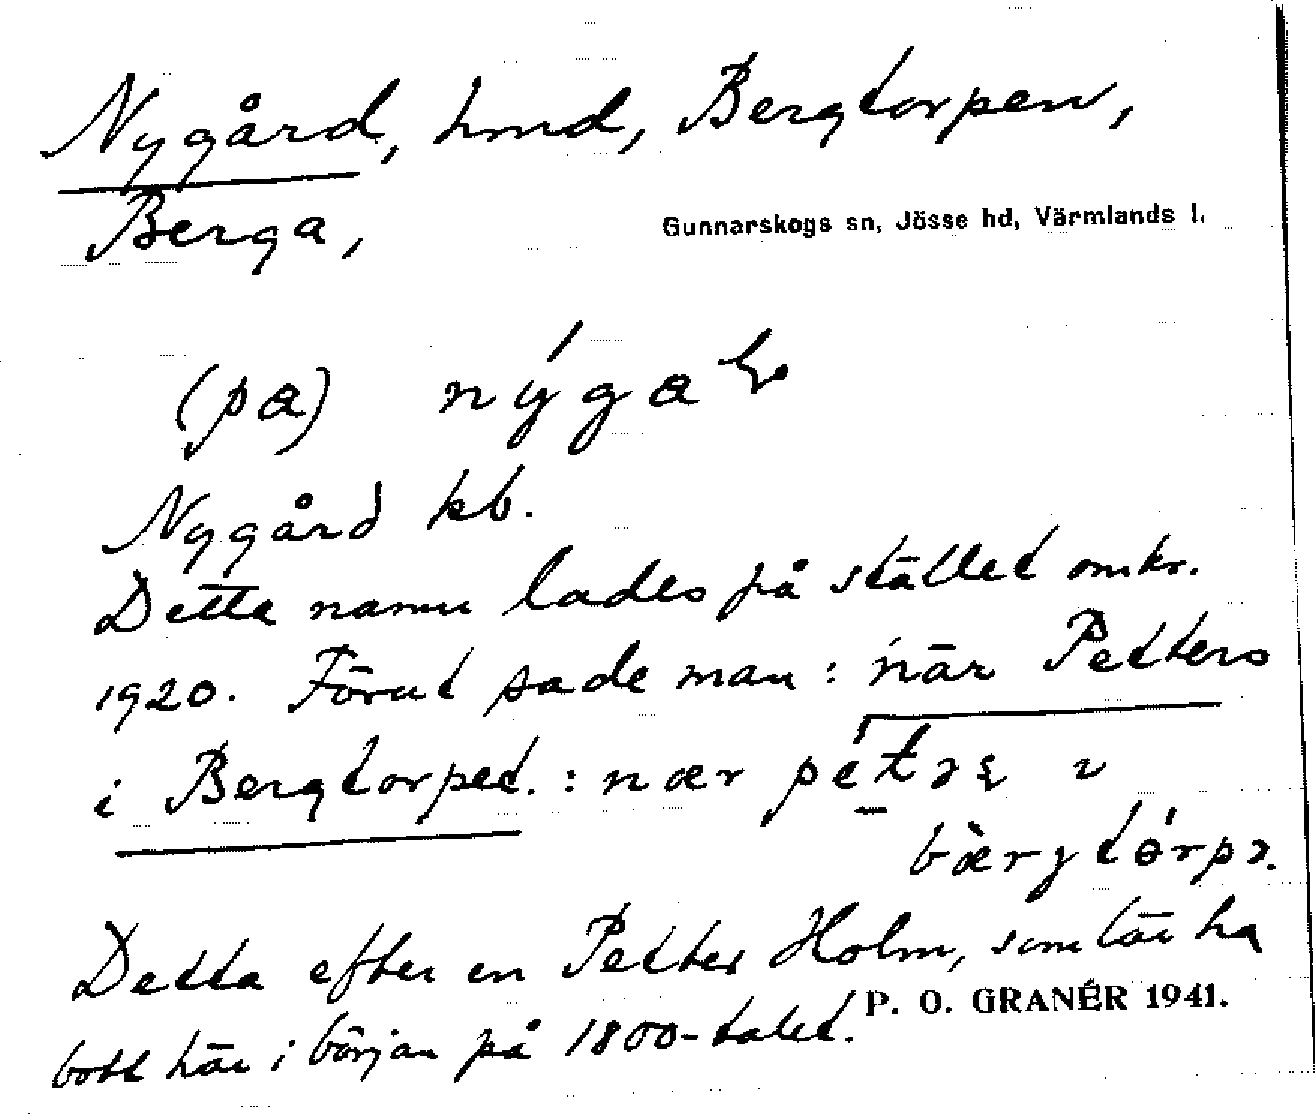 Nygård, hmd, Bergtorpen,
Berga,
Gunnarskogs sn, Jösse hd, Värmlands l.
(pa) nýga
Nygård kb.
Detta namn lades på stället omkr.
1920. Förut sade man: när Petters
i Bergtorpet. : nær
Detta efter en Petter Holm, som lär ha
bott här i början på 1800-talet.
P. O. GRANÉR 1941.